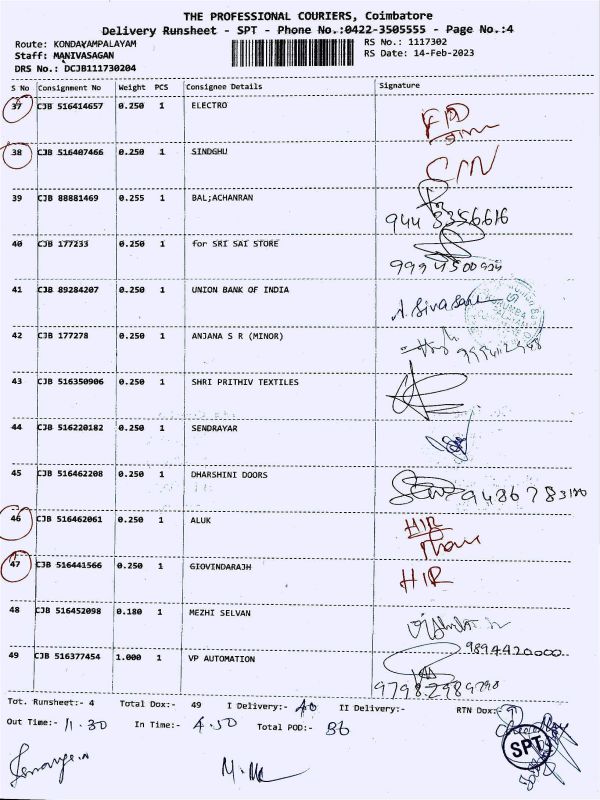 THE PROFESSIONAL COURIERS, Coimbatore
Delivery Runsheet - SPT - Phone No.:0422-3505555 - Page No.:4
Route: KONDAYAMPALAYAM RS No.: 1117302
Staff: MANIVASAGAN RS Date: 14-Feb-2023
DRS No.: DCJB111730204
S No Consignment No Weight PCS Consignee Details Signature
37 CJB 516414657 0.250 1 ELECTRO
38 CJB 516407466 0.250 1 SINDGHU
39 CJB 88881469 0.255 1 BAL;ACHANRAN
9448356616
40 CJB 177233 0.250 1 for SRI SAI STORE
41 CJB 89284207 0.250 1 UNION BANK OF INDIA
42 CJB 177278 0.250 1 ANJANA S R (MINOR)
43 CJB 516350906 0.250 1 SHRI PRITHIV TEXTILES
44 CJB 516220182 0.250 1 SENDRAYAR
45 CJB 516462208 0.250 1 DHARSHINI DOORS
46 CJB 516462061 0.250 1 ALUK HIR
47 CJB 516441566 0.250 1 GIOVINDARAJH HIR
48 CJB 516452098 0.180 1 MEZHI SELVAN
9894420000
49 CJB 516377454 1.000 1 VP AUTOMATION
Tot. Runsheet:- 4 Total Dox:- 49 I Delivery:- 40 II Delivery:- RTN Dox:- 9
Out Time:- 11.30 In Time:- 4.50 Total POD:- 86
SPT